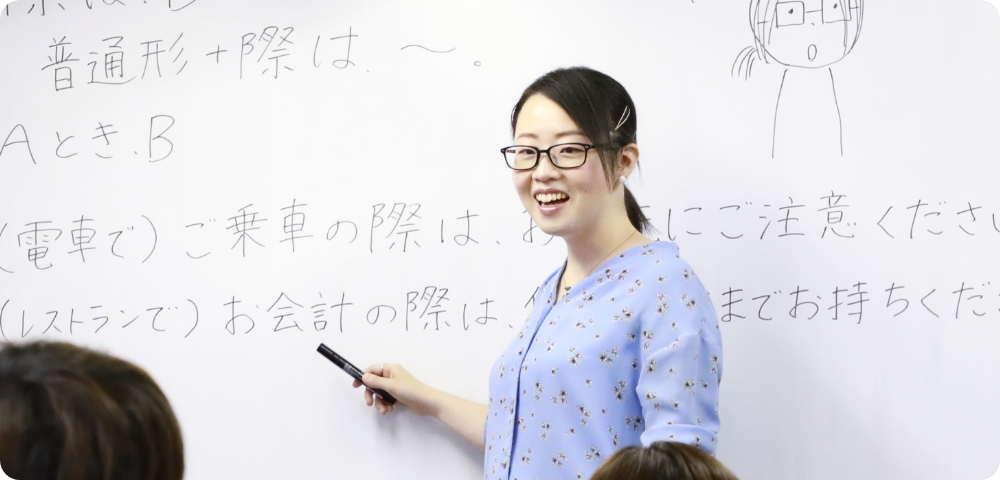 普通形+際は、〜。
Aとき、B
(電車で)ご乗車の際は、お にご注意ください
(レストランで)お会計の際は、 までお持ちくだ